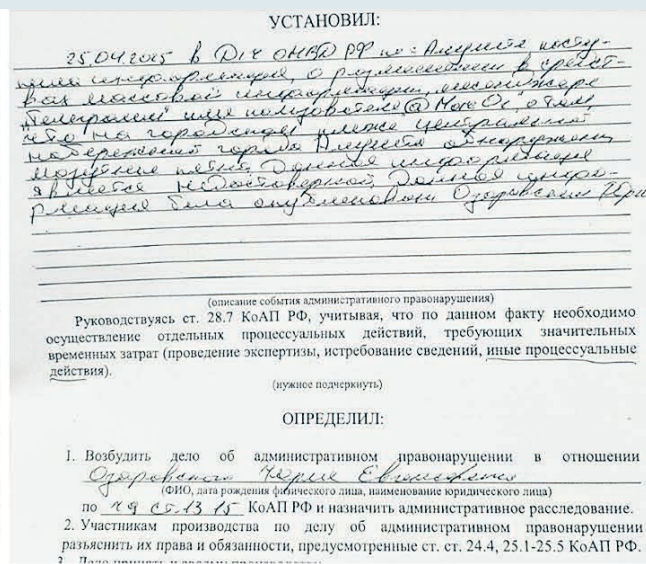 УСТАНОВИЛ:
25.04.2025 в ДЧ ОМВД РФ по г. Алушта посту-
пила информация, о размещении в средст-
вах массовой информации, мессенджере
"Телеграмм" имя пользователя о том,
что на городском пляже центральной
набережной города Алушта обнаружены
мазутные пятна. Данная информация
является недостоверной. Данная инфо-
рмация была опубликована Озаровским Юри
(описание события административного правонарушения)
Руководствуясь ст. 28.7 КоАП РФ, учитывая, что по данном факту необходимо
осуществление отдельных процессуальных действий, требующих значительных
временных затрат (проведение экспертизы, истребование сведений, иные процессуальные
действия).
(нужное подчеркнуть)
ОПРЕДЕЛИЛ:
1. Возбудить дело об административном правонарушении в отношении
Озаровского Юрия
(ФИО, дата рождения физического лица, наименование юридического лица)
по ч 9 ст. 13 15 КоАП РФ и назначить административное расследование.
2. Участникам производства по делу об административном правонарушении
разъяснить их права и обязанности, предусмотренные ст. ст. 24.4, 25.1-25.5 КоАП РФ.